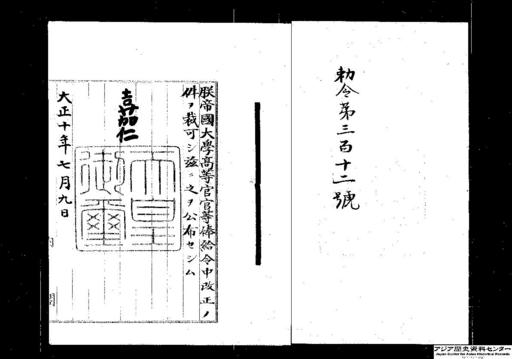 勅令第三百十二號
朕帝國大學高等官官等俸給令中改正ノ
件ヲ裁可シ玆ニ之ヲ公布セシム
嘉仁
天皇御璽
大正十年七月九日
アジア歴史資料センター
Japan Center for Asian Historical Records